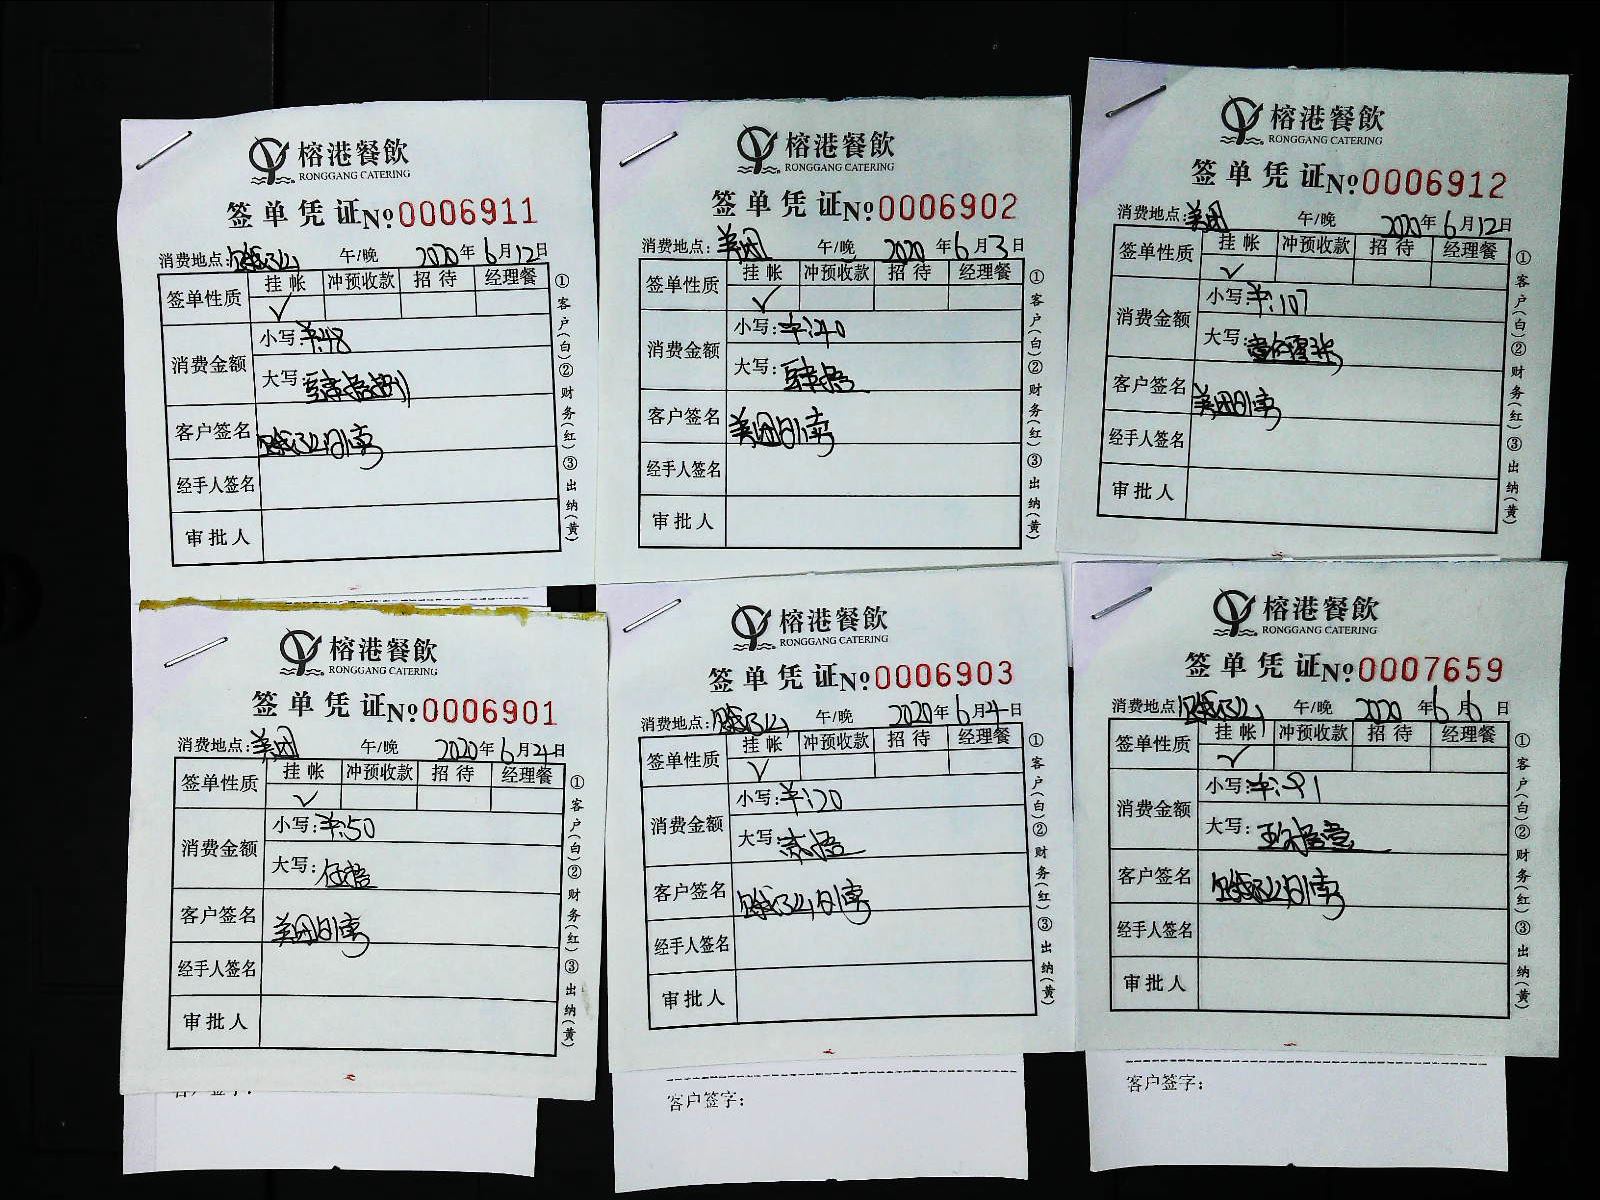 榕港餐飲
RONGGANG CATERING
签单凭证№0006911
消费地点: 饿了么 午/晚 2020年6月12日
签单性质 挂帐 冲预收款 招待 经理餐
✓
消费金额 小写:¥:48
大写: 肆拾捌
客户签名 饿了么外卖
经手人签名
审批人
①客户(白)②财务(红)③出纳(黄)
榕港餐飲
RONGGANG CATERING
签单凭证№0006902
消费地点: 美团 午/晚 2020年6月3日
签单性质 挂帐 冲预收款 招待 经理餐
✓
消费金额 小写:¥:40
大写: 肆拾
客户签名 美团外卖
经手人签名
审批人
①客户(白)②财务(红)③出纳(黄)
榕港餐飲
RONGGANG CATERING
签单凭证№0006912
消费地点: 美团 午/晚 2020年6月12日
签单性质 挂帐 冲预收款 招待 经理餐
✓
消费金额 小写:¥:107
大写: 壹佰零柒
客户签名 美团外卖
经手人签名
审批人
①客户(白)②财务(红)③出纳(黄)
榕港餐飲
RONGGANG CATERING
签单凭证№0006901
消费地点: 美团 午/晚 2020年6月2日
签单性质 挂帐 冲预收款 招待 经理餐
✓
消费金额 小写:¥:50
大写: 伍拾
客户签名 美团外卖
经手人签名
审批人
①客户(白)②财务(红)③出纳(黄)
榕港餐飲
RONGGANG CATERING
签单凭证№0006903
消费地点: 饿了么 午/晚 2020年6月4日
签单性质 挂帐 冲预收款 招待 经理餐
✓
消费金额 小写:¥:20
大写: 贰拾
客户签名 饿了么外卖
经手人签名
审批人
①客户(白)②财务(红)③出纳(黄)
客户签字:
榕港餐飲
RONGGANG CATERING
签单凭证№0007659
消费地点: 饿了么 午/晚 2020年6月6日
签单性质 挂帐 冲预收款 招待 经理餐
✓
消费金额 小写:¥:91
大写: 玖拾壹
客户签名 饿了么外卖
经手人签名
审批人
①客户(白)②财务(红)③出纳(黄)
客户签字: